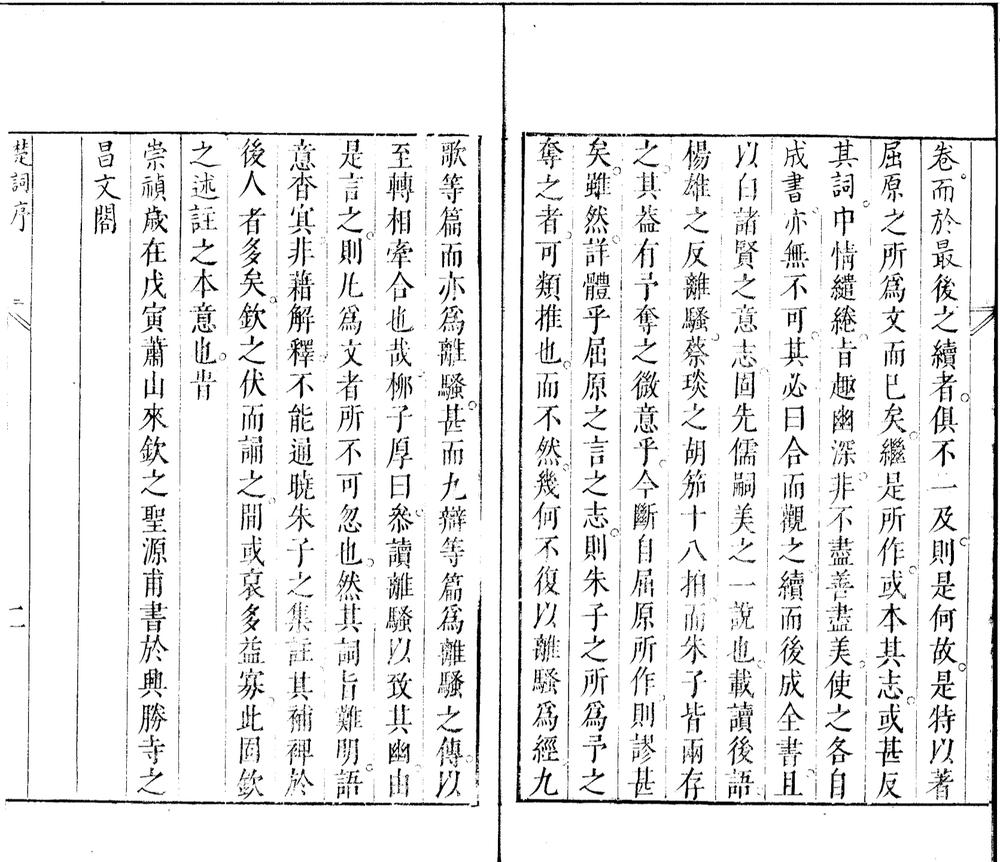 卷而於最後之續者俱不一及則是何故是特以著
屈原之所爲文而已矣繼是所作或本其志或甚反
其詞中情繾綣旨趣幽深非不盡善盡美使之各自
成書亦無不可其必曰合而觀之續而後成全書且
以白諸賢之意志固先儒嗣美之一說也載讀後語
楊雄之反離騷蔡琰之胡笳十八拍而朱子皆兩存
之其葢有予奪之微意乎今斷自屈原所作則謬甚
矣雖然詳體乎屈原之言之志則朱子之所爲予之
奪之者可類推也而不然幾何不復以離騷爲經九
歌等篇而亦爲離騷甚而九辯等篇爲離騷之傳以
至轉相牽合也哉栁子厚曰叅讀離騷以致其幽由
是言之則凡爲文者所不可忽也然其詞旨難明語
意杳冥非藉解釋不能通曉朱子之集註其補裨於
後人者多矣欽之伏而誦之間或裒多益寡此固欽
之述註之本意也旹
崇禎歲在戊寅蕭山來欽之聖源甫書於興勝寺之
昌文閣
楚詞序 二